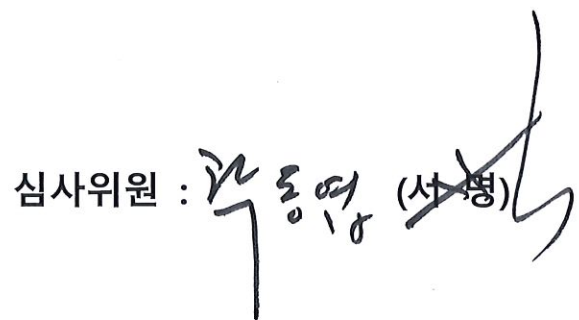 심사위원 : 곽동엽 (서명)